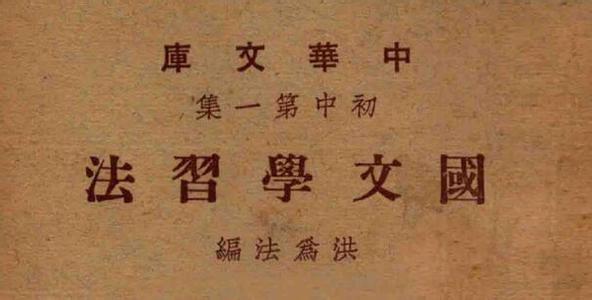 中華文庫
初中第一集
國文學習法
洪爲法編